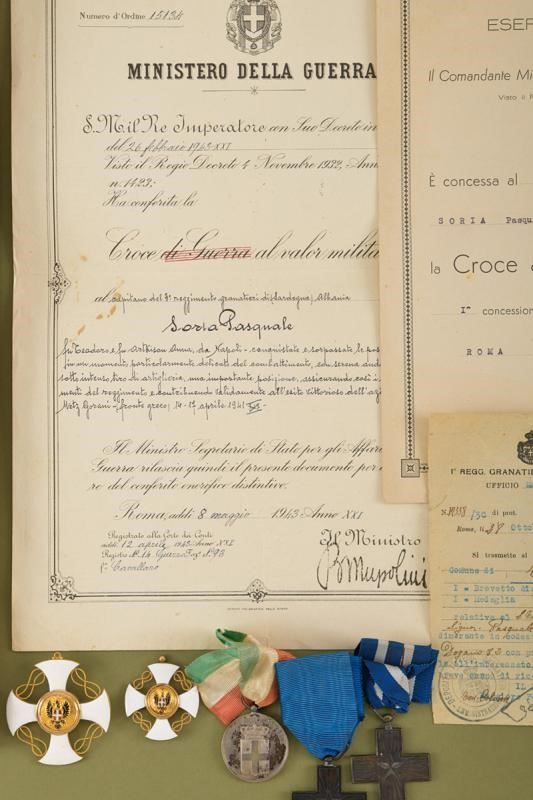 Numero d'Ordine 15134
MINISTERO DELLA GUERRA
S. M. il Re Imperatore con Suo Decreto in
del 26 febbraio 1943-XXI
Visto il Regio Decreto 4 Novembre 1932, Ann
n. 1423;
Ha conferita la
Croce di Guerra al valor milita
al capitano del 3° reggimento granatieri di (Sardegna) Albania
Soria Pasquale
fu Teodoro, fu Anna, da Napoli - conquistate e sorpassate le pos
in un momento particolarmente delicato del combattimento, con serena aud
sotto intenso tiro di artiglieria, una importante posizione, assicurando così i
menti del reggimento e contribuendo validamente all'esito vittorioso dell'azi
fronte greco, 14-17 aprile 1941
Il Ministro Segretario di Stato per gli Affar
Guerra rilascia quindi il presente documento per
ro del conferito onorifico distintivo.
Roma, addì 8 maggio 1943 Anno XXI
Registrato alla Corte dei Conti
addì 12 aprile 1943 Anno XXI
Registro N. 14 Guerra Fog. N. 93
Il Ministro
ESER
Il Comandante Mi
Visto il R
È concessa al
SORIA Pasqu
la Croce
1ª concession
ROMA
1° REGG. GRANATIE
UFFICIO
N. /30 di prot.
Roma, li 28 Ottob
Si trasmette al
Comune di
1 = Brevetto di
1 = Medaglia
relativa al
Signor. Pasquale
dimorante in codes